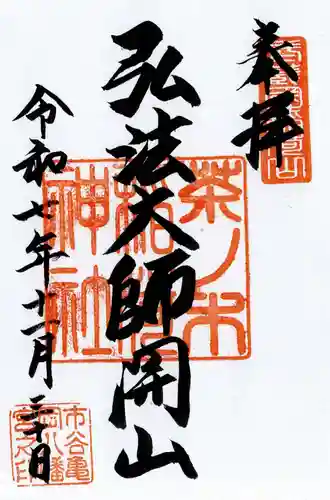 奉拝
弘法大師開山
茶ノ木
稲荷
神社
令和七年十一月三十日
市谷亀
岡八幡
宮之印